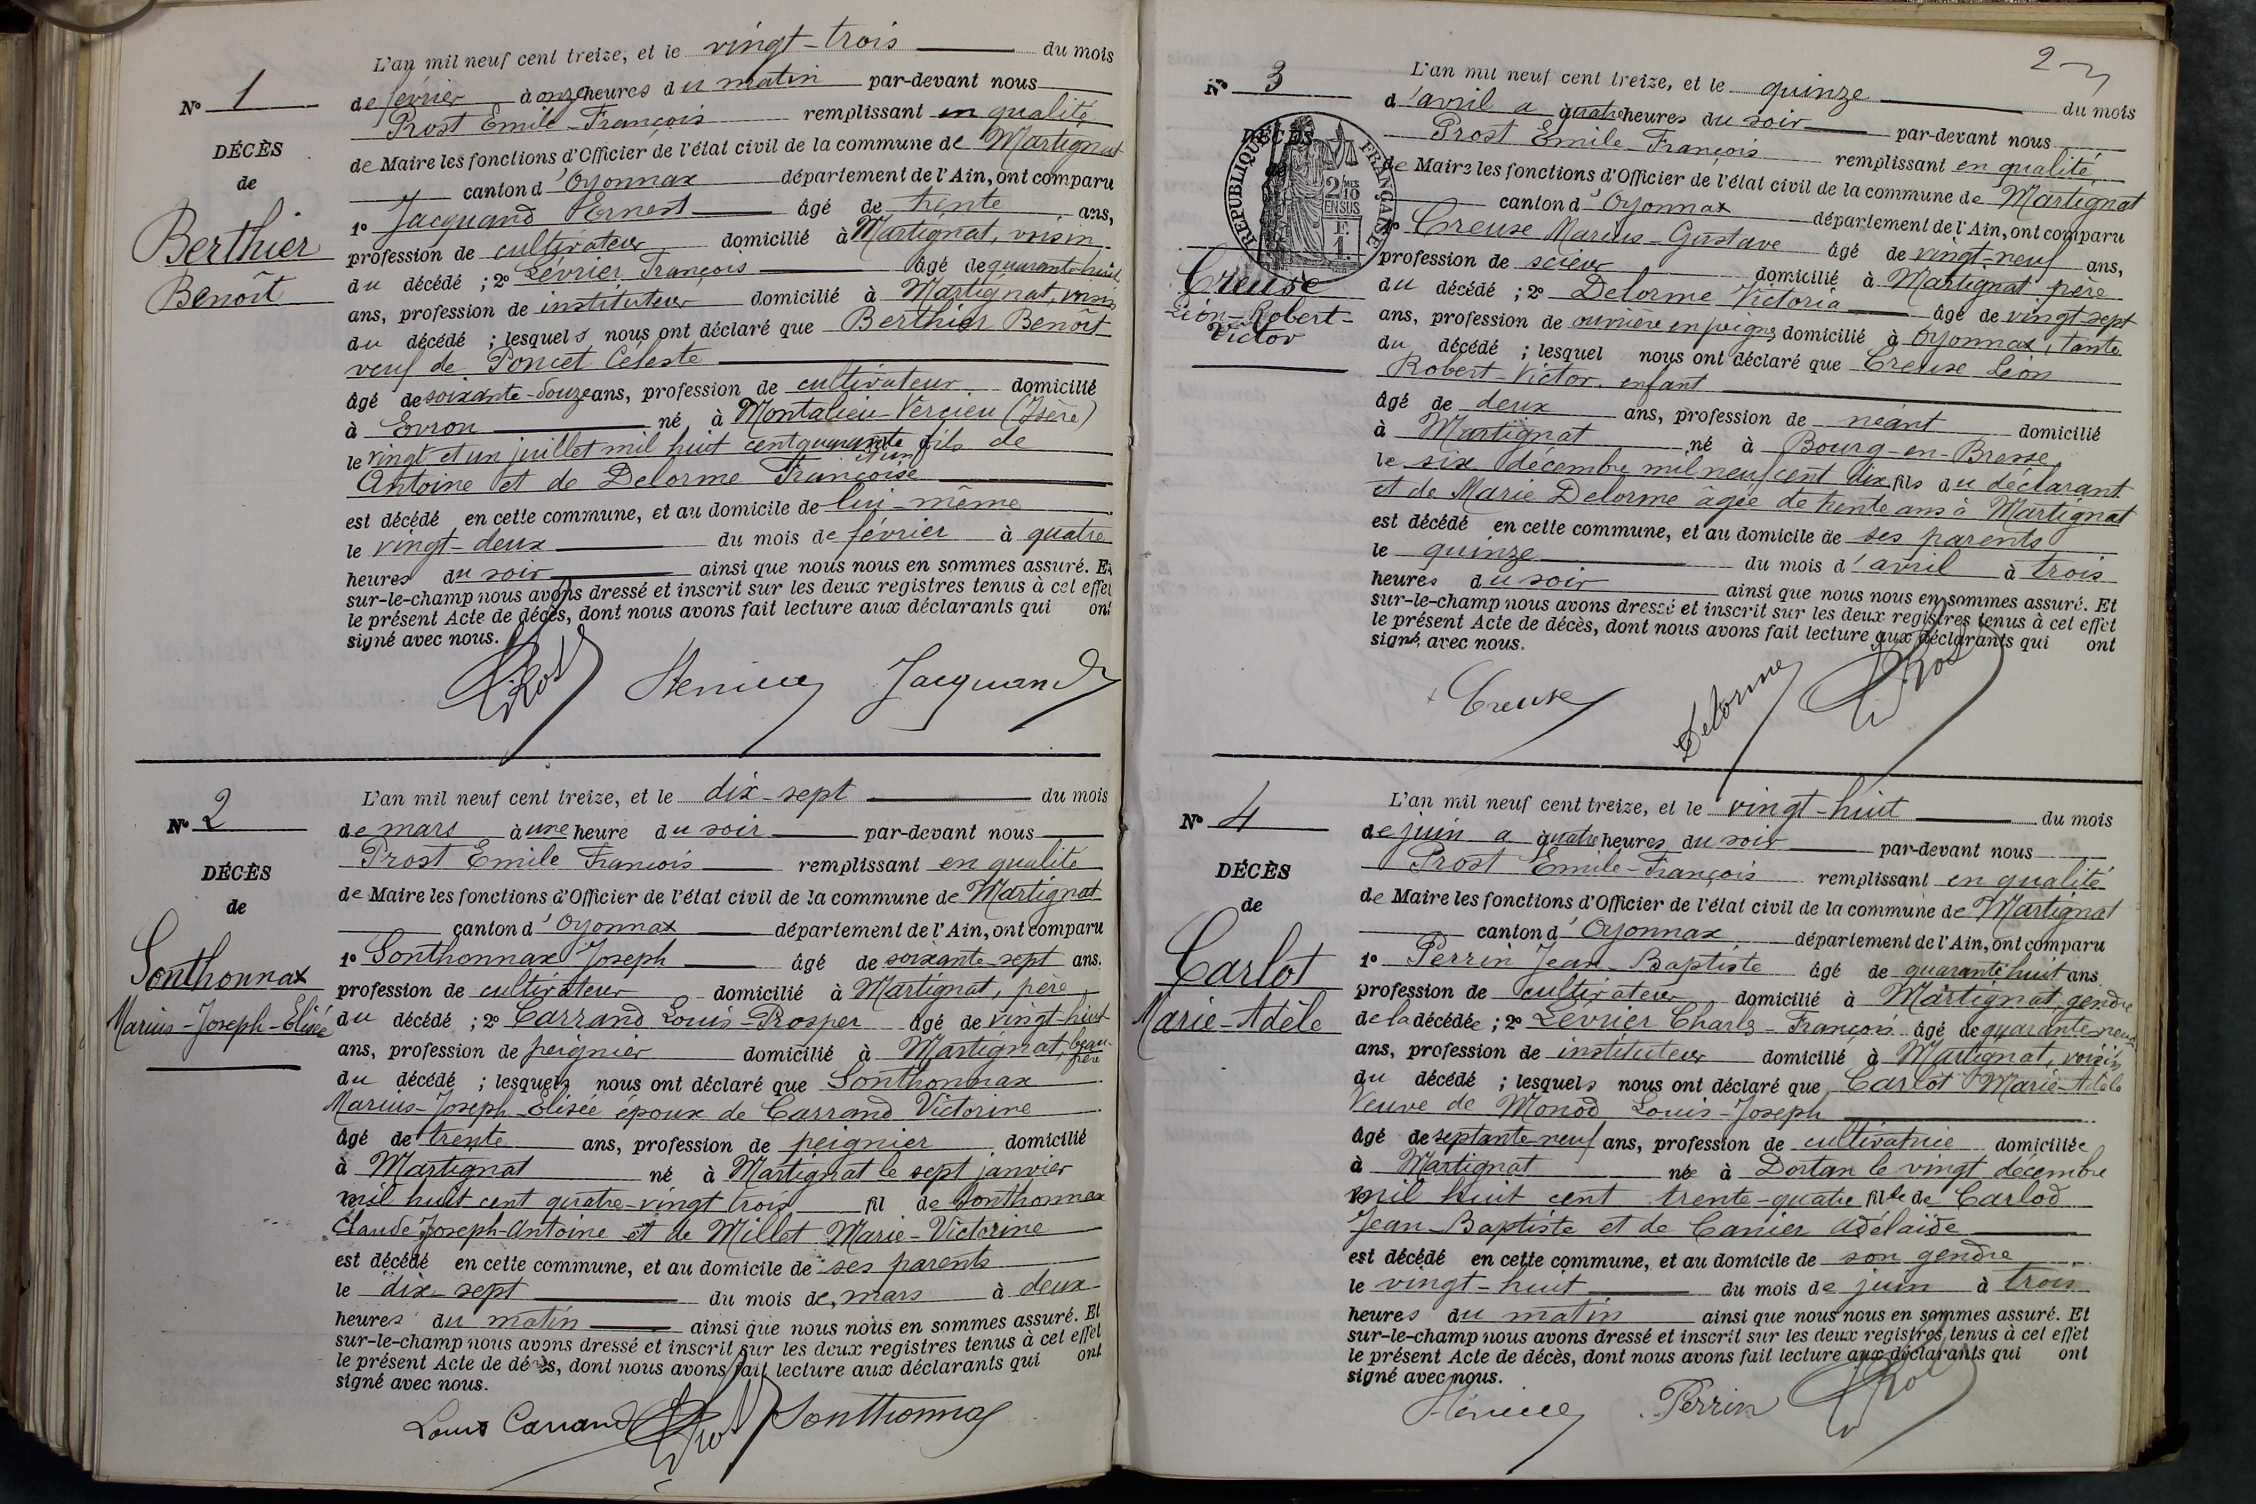 L'an mil neuf cent treize, et le vingt-trois du mois
N° 1
de février à onze heures du matin par-devant nous
Prost Emile-François remplissant en qualité
DÉCÈS
de Maire les fonctions d'Officier de l'état civil de la commune de Martignat
de
canton d'Oyonnax département de l'Ain, ont comparu
1° Jacquand Ernest âgé de trente ans,
Berthier
profession de cultivateur domicilié à Martignat, voisin
du décédé ; 2° Lévrier François âgé de quarante-huit
Benoît
ans, profession de instituteur domicilié à Martignat, voisin
du décédé ; lesquels nous ont déclaré que Berthier Benoît
veuf de Poncet Céleste
âgé de soixante-douze ans, profession de cultivateur domicilié
à Evron né à Montalieu-Vercieu (Isère)
le vingt et un juillet mil huit cent quarante et un fils de
Antoine et de Delorme Françoise
est décédé en cette commune, et au domicile de lui-même
le vingt-deux du mois de février à quatre
heures du soir ainsi que nous nous en sommes assuré. Et
sur-le-champ nous avons dressé et inscrit sur les deux registres tenus à cet effet
le présent Acte de décès, dont nous avons fait lecture aux déclarants qui ont
signé avec nous.
Prost Jacquand
L'an mil neuf cent treize, et le dix-sept du mois
N° 2
de mars à une heure du soir par-devant nous
Prost Emile François remplissant en qualité
DÉCÈS
de Maire les fonctions d'Officier de l'état civil de la commune de Martignat
de
canton d'Oyonnax département de l'Ain, ont comparu
1° Sonthonnax Joseph âgé de soixante sept ans.
Sonthonnax
profession de cultivateur domicilié à Martignat, père
Marius-Joseph-Elisée
du décédé ; 2° Carrand Louis-Prosper âgé de vingt-huit
ans, profession de peignier domicilié à Martignat, beau-père
du décédé ; lesquels nous ont déclaré que Sonthonnax
Marius-Joseph-Elisée époux de Carrand Victorine
âgé de trente ans, profession de peignier domicilié
à Martignat né à Martignat le sept janvier
mil huit cent quatre-vingt trois fil de Sonthonnax
Claude Joseph-Antoine et de Millet Marie-Victorine
est décédé en cette commune, et au domicile de ses parents
le dix-sept du mois de mars à deux
heures du matin ainsi que nous nous en sommes assuré. Et
sur-le-champ nous avons dressé et inscrit sur les deux registres tenus à cet effet
le présent Acte de décès, dont nous avons fait lecture aux déclarants qui ont
signé avec nous.
Louis Carrand Prost Sonthonnax
2
L'an mil neuf cent treize, et le quinze du mois
N° 3
d'avril a quatre heures du soir par-devant nous
Prost Emile-François remplissant en qualité
DÉCÈS
RÉPUBLIQUE FRANÇAISE
2/10 EN SUS
F. 1.
de Maire les fonctions d'Officier de l'état civil de la commune de Martignat
canton d'Oyonnax département de l'Ain, ont comparu
1° Creuse Marius-Gustave âgé de vingt-neuf ans,
profession de scieur domicilié à Martignat père
Creuse
du décédé ; 2° Delorme Victoria âgé de vingt-sept
Léon-Robert-
Victor
ans, profession de ouvrière en peignes domicilié à Oyonnax, tante
du décédé ; lesquel nous ont déclaré que Creuse Léon
Robert-Victor, enfant
âgé de deux ans, profession de néant domicilié
à Martignat né à Bourg-en-Bresse
le six décembre mil neuf cent dix fils du déclarant
et de Marie Delorme âgée de trente ans à Martignat
est décédé en cette commune, et au domicile de ses parents
le quinze du mois d'avril à trois
heures du soir ainsi que nous nous en sommes assuré. Et
sur-le-champ nous avons dressé et inscrit sur les deux registres tenus à cet effet
le présent Acte de décès, dont nous avons fait lecture aux déclarants qui ont
signé, avec nous.
Creuse Delorme Prost
L'an mil neuf cent treize, et le vingt-huit du mois
N° 4
de juin a quatre heures du soir par-devant nous
Prost Emile-François remplissant en qualité
DÉCÈS
de Maire les fonctions d'Officier de l'état civil de la commune de Martignat
de
canton d'Oyonnax département de l'Ain, ont comparu
Carlot
1° Perrin Jean-Baptiste âgé de quarante huit ans
profession de cultivateur domicilié à Martignat, gendre
Marie-Adèle
de la décédée ; 2° Lévrier Charles-François âgé de quarante-neuf
ans, profession de instituteur domicilié à Martignat, voisin
du décédé ; lesquels nous ont déclaré que Carlot Marie-Adèle
Veuve de Monod Louis-Joseph
âgé de septante-neuf ans, profession de cultivatrice domiciliée
à Martignat née à Dortan le vingt décembre
mil huit cent trente-quatre fille de Carlod
Jean-Baptiste et de Canier Adélaïde
est décédé en cette commune, et au domicile de son gendre
le vingt-huit du mois de juin à trois
heures du matin ainsi que nous nous en sommes assuré. Et
sur-le-champ nous avons dressé et inscrit sur les deux registres tenus à cet effet
le présent Acte de décès, dont nous avons fait lecture aux déclarants qui ont
signé avec nous.
Perrin Prost